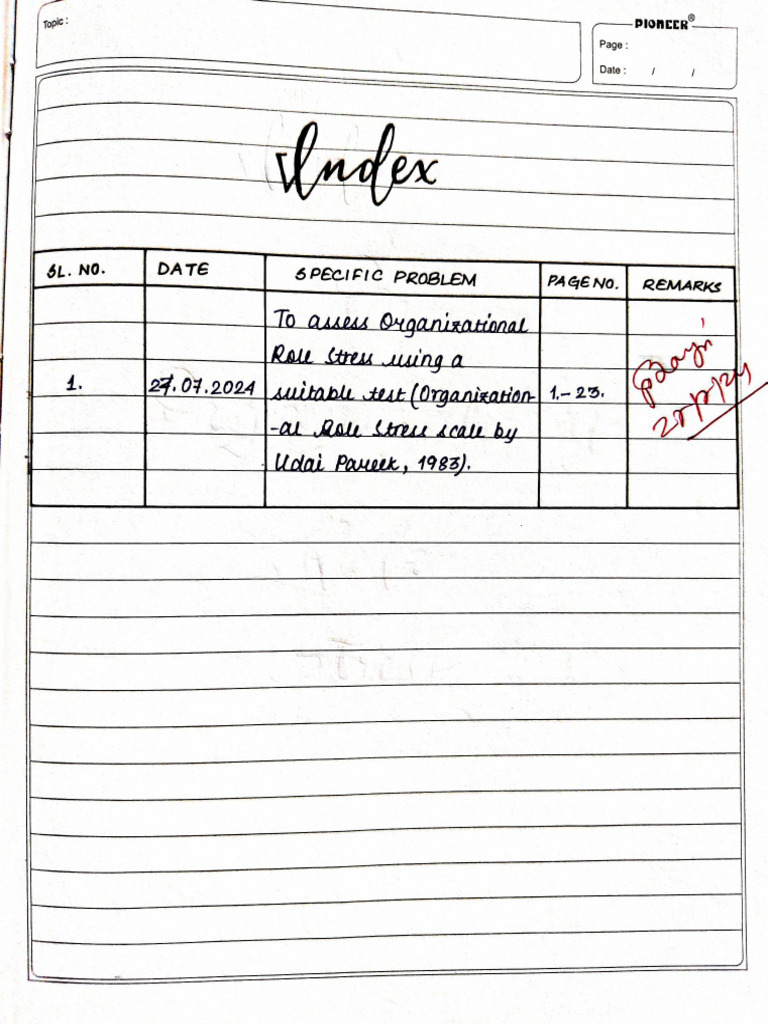 Topic :
PIONEER®
Page :
Date : / /
Index
SL. NO. DATE SPECIFIC PROBLEM PAGE NO. REMARKS
To assess Organizational
Role Stress using a
1. 27.07.2024 suitable test (Organization- 1.-23.
-al Role Stress scale by
Udai Pareek, 1983).